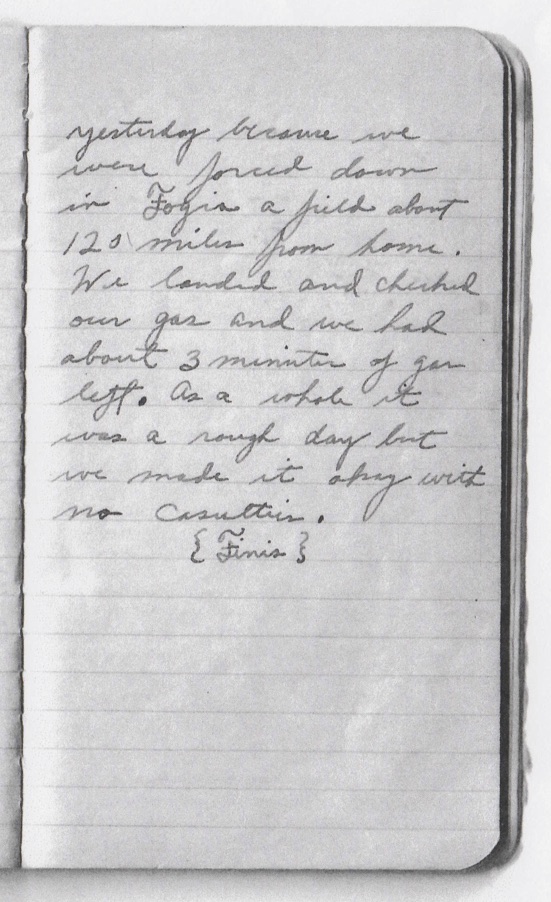 yesterday because we
were forced down
in Fogia a field about
120 miles from home.
We landed and checked
our gas and we had
about 3 minutes of gas
left. As a whole it
was a rough day but
we made it okay with
no casulties.
{ Finis }